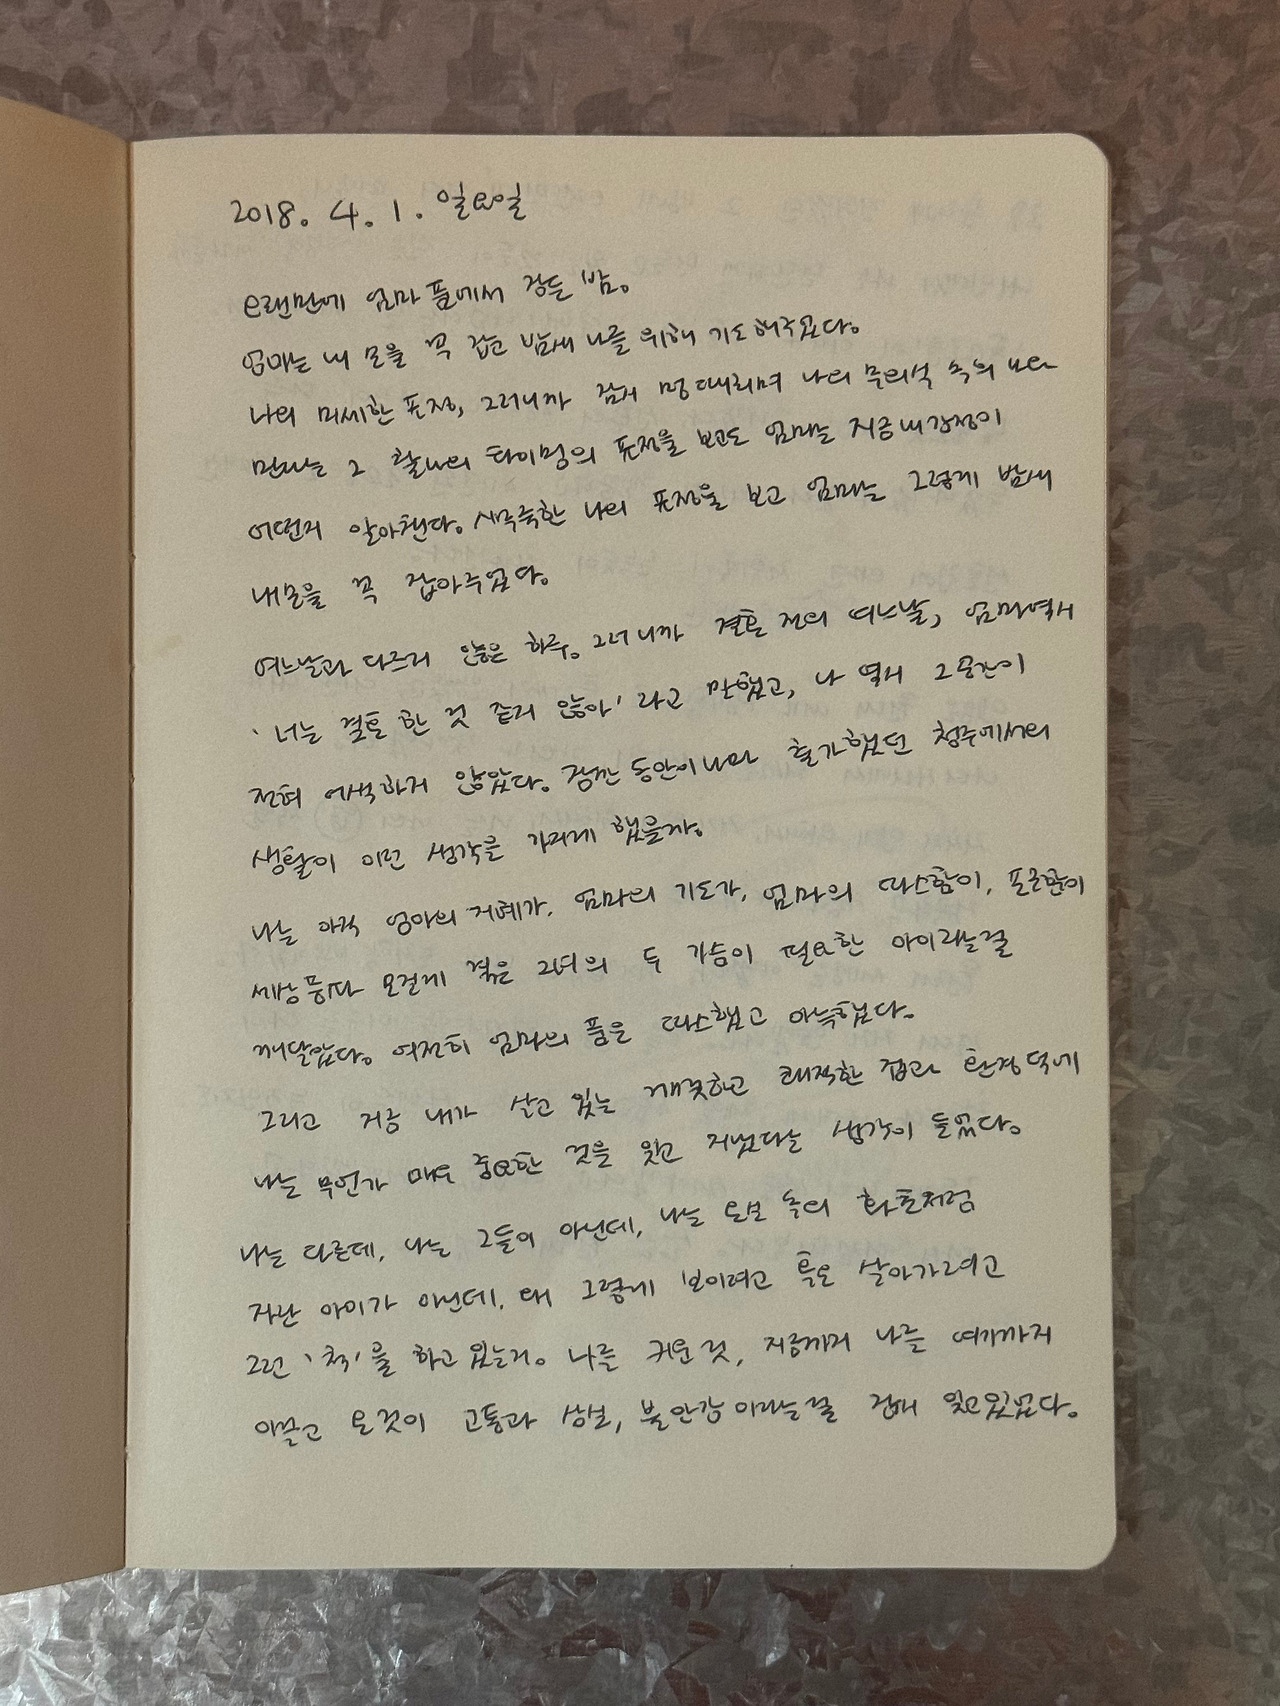 2018. 4. 1. 일요일
오랜만에 엄마 품에서 잠든 밤.
엄마는 내 몸을 꼭 잡고 밤새 나를 위해 기도해주었다.
나의 미세한 표정, 그러니까 잠시 멍때리며 나의 무의식 속의
만나는 그 찰나의 타이밍의 표정을 보고도 엄마는 지금 내 감정이
어떤지 알아챈다. 시무룩한 나의 표정을 보고 엄마는 그렇게 밤새
내 몸을 꼭 잡아주었다.
여느날과 다르지 않은 하루. 그러니까 결혼 전의 여느날, 엄마 역시
'너는 결혼 한 것 같지 않아' 라고 말했고, 나 역시 그 공간이
전혀 어색하지 않았다. 잠깐 동안이나마 출가했던 청주에서의
생활이 이런 생각을 가지게 했을까.
나는 아직 엄마의 지혜가, 엄마의 기도가, 엄마의 따스함이, 포근함이
세상 풍파 모질게 겪은 그녀의 두 가슴이 필요한 아이라는걸
깨달았다. 여전히 엄마의 품은 따스했고 아늑했다.
그리고 지금 내가 살고 있는 깨끗하고 쾌적한 집과 환경 덕에
나는 무언가 매우 중요한 것을 잊고 지냈다는 생각이 들었다.
나는 다른데, 나는 그들이 아닌데, 나는 온실 속의 화초처럼
자란 아이가 아닌데, 왜 그렇게 보이려고 혹은 살아가려고
그런 '척'을 하고 있는지. 나를 키운 것, 지금까지 나를 여기까지
이끌고 온 것이 고통과 상실, 불안감이라는걸 잠시 잊고 있었다.